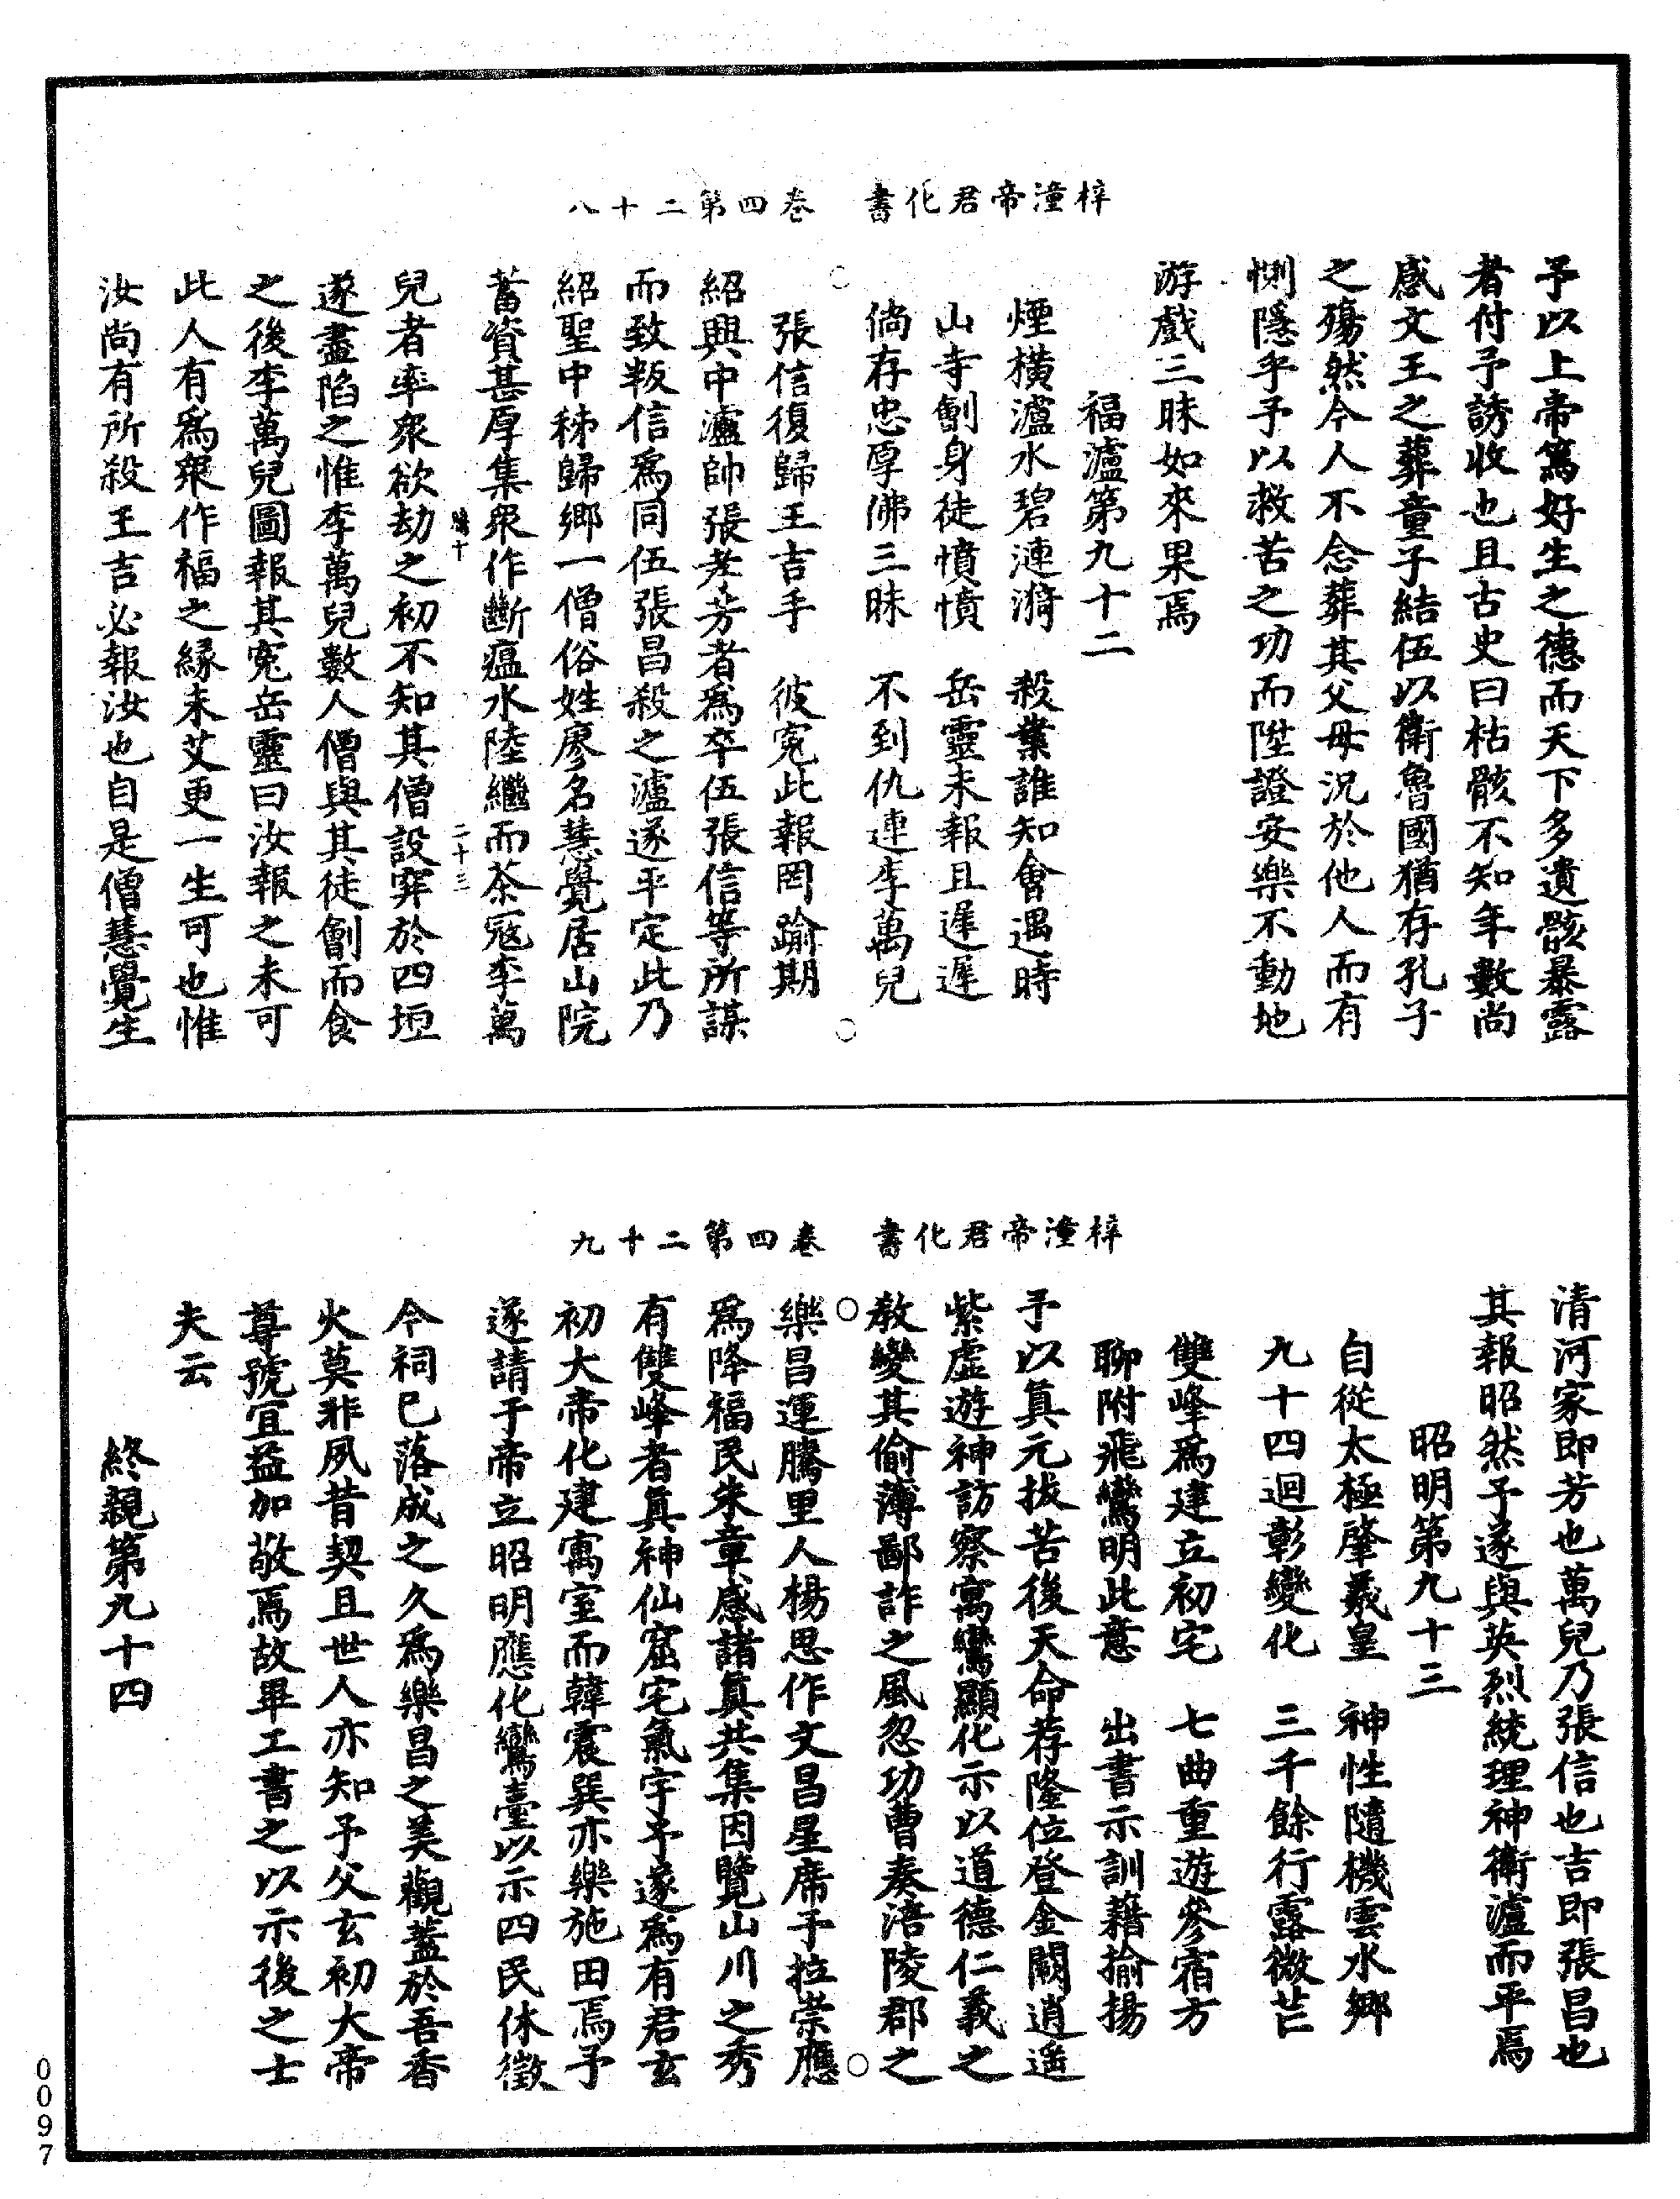 梓潼帝君化書　卷四第二十八
予以上帝篤好生之德而天下多遺骸暴露
者付予誘收也且古史曰枯骸不知年數尚
感文王之葬童子結伍以衛魯國猶存孔子
之殤然今人不念葬其父母況於他人而有
惻隱乎予以救苦之功而陞證安樂不動地
游戲三昧如來果焉
福瀘第九十二
煙橫瀘水碧漣漪　殺業誰知會遇時
山寺劊身徒憤憤　岳靈未報且遲遲
倘存忠厚佛三昧　不到仇連李萬兒
張信復歸王吉手　彼寃此報罔踰期
紹興中瀘帥張孝芳者爲卒伍張信等所謀
而致叛信爲同伍張昌殺之瀘遂平定此乃
紹聖中秭歸鄉一僧俗姓廖名慧覺居山院
蓄資甚厚集衆作斷瘟水陸繼而茶冦李萬
二十三
兒者率衆欲劫之初不知其僧設穽於四垣
遂盡陷之惟李萬兒數人僧與其徒劊而食
之後李萬兒圖報其寃岳靈曰汝報之未可
此人有爲衆作福之緣未艾更一生可也惟
汝尚有所殺王吉必報汝也自是僧慧覺生
梓潼帝君化書　卷四第二十九
清河家即芳也萬兒乃張信也吉即張昌也
其報昭然予遂與英烈統理神衛瀘而平焉
昭明第九十三
自從太極肇羲皇　神性隨機雲水鄉
九十四迴彰變化　三千餘行露微芒
雙峰爲建立初宅　七曲重遊參宿方
聊附飛鸞明此意　出書示訓藉揄揚
予以眞元拔苦後天命荐隆位登金闕逍遙
紫虛遊神訪察寓鸞顯化示以道德仁義之
教變其偷薄鄙詐之風忽功曹奏涪陵郡之
樂昌運騰里人楊思作文昌星席予拉崇應
爲降福民朱章感諸眞共集因覽山川之秀
有雙峰者眞神仙窟宅氣宇予遂爲有君玄
初大帝化建寓室而韓震巽亦樂施田焉予
遂請于帝立昭明應化鸞臺以示四民休徵
今祠巳落成之久爲樂昌之美觀蓋於吾香
火莫非夙昔契且世人亦知予父玄初大帝
尊號宜益加敬焉故畢工書之以示後之士
夫云
終親第九十四
0097